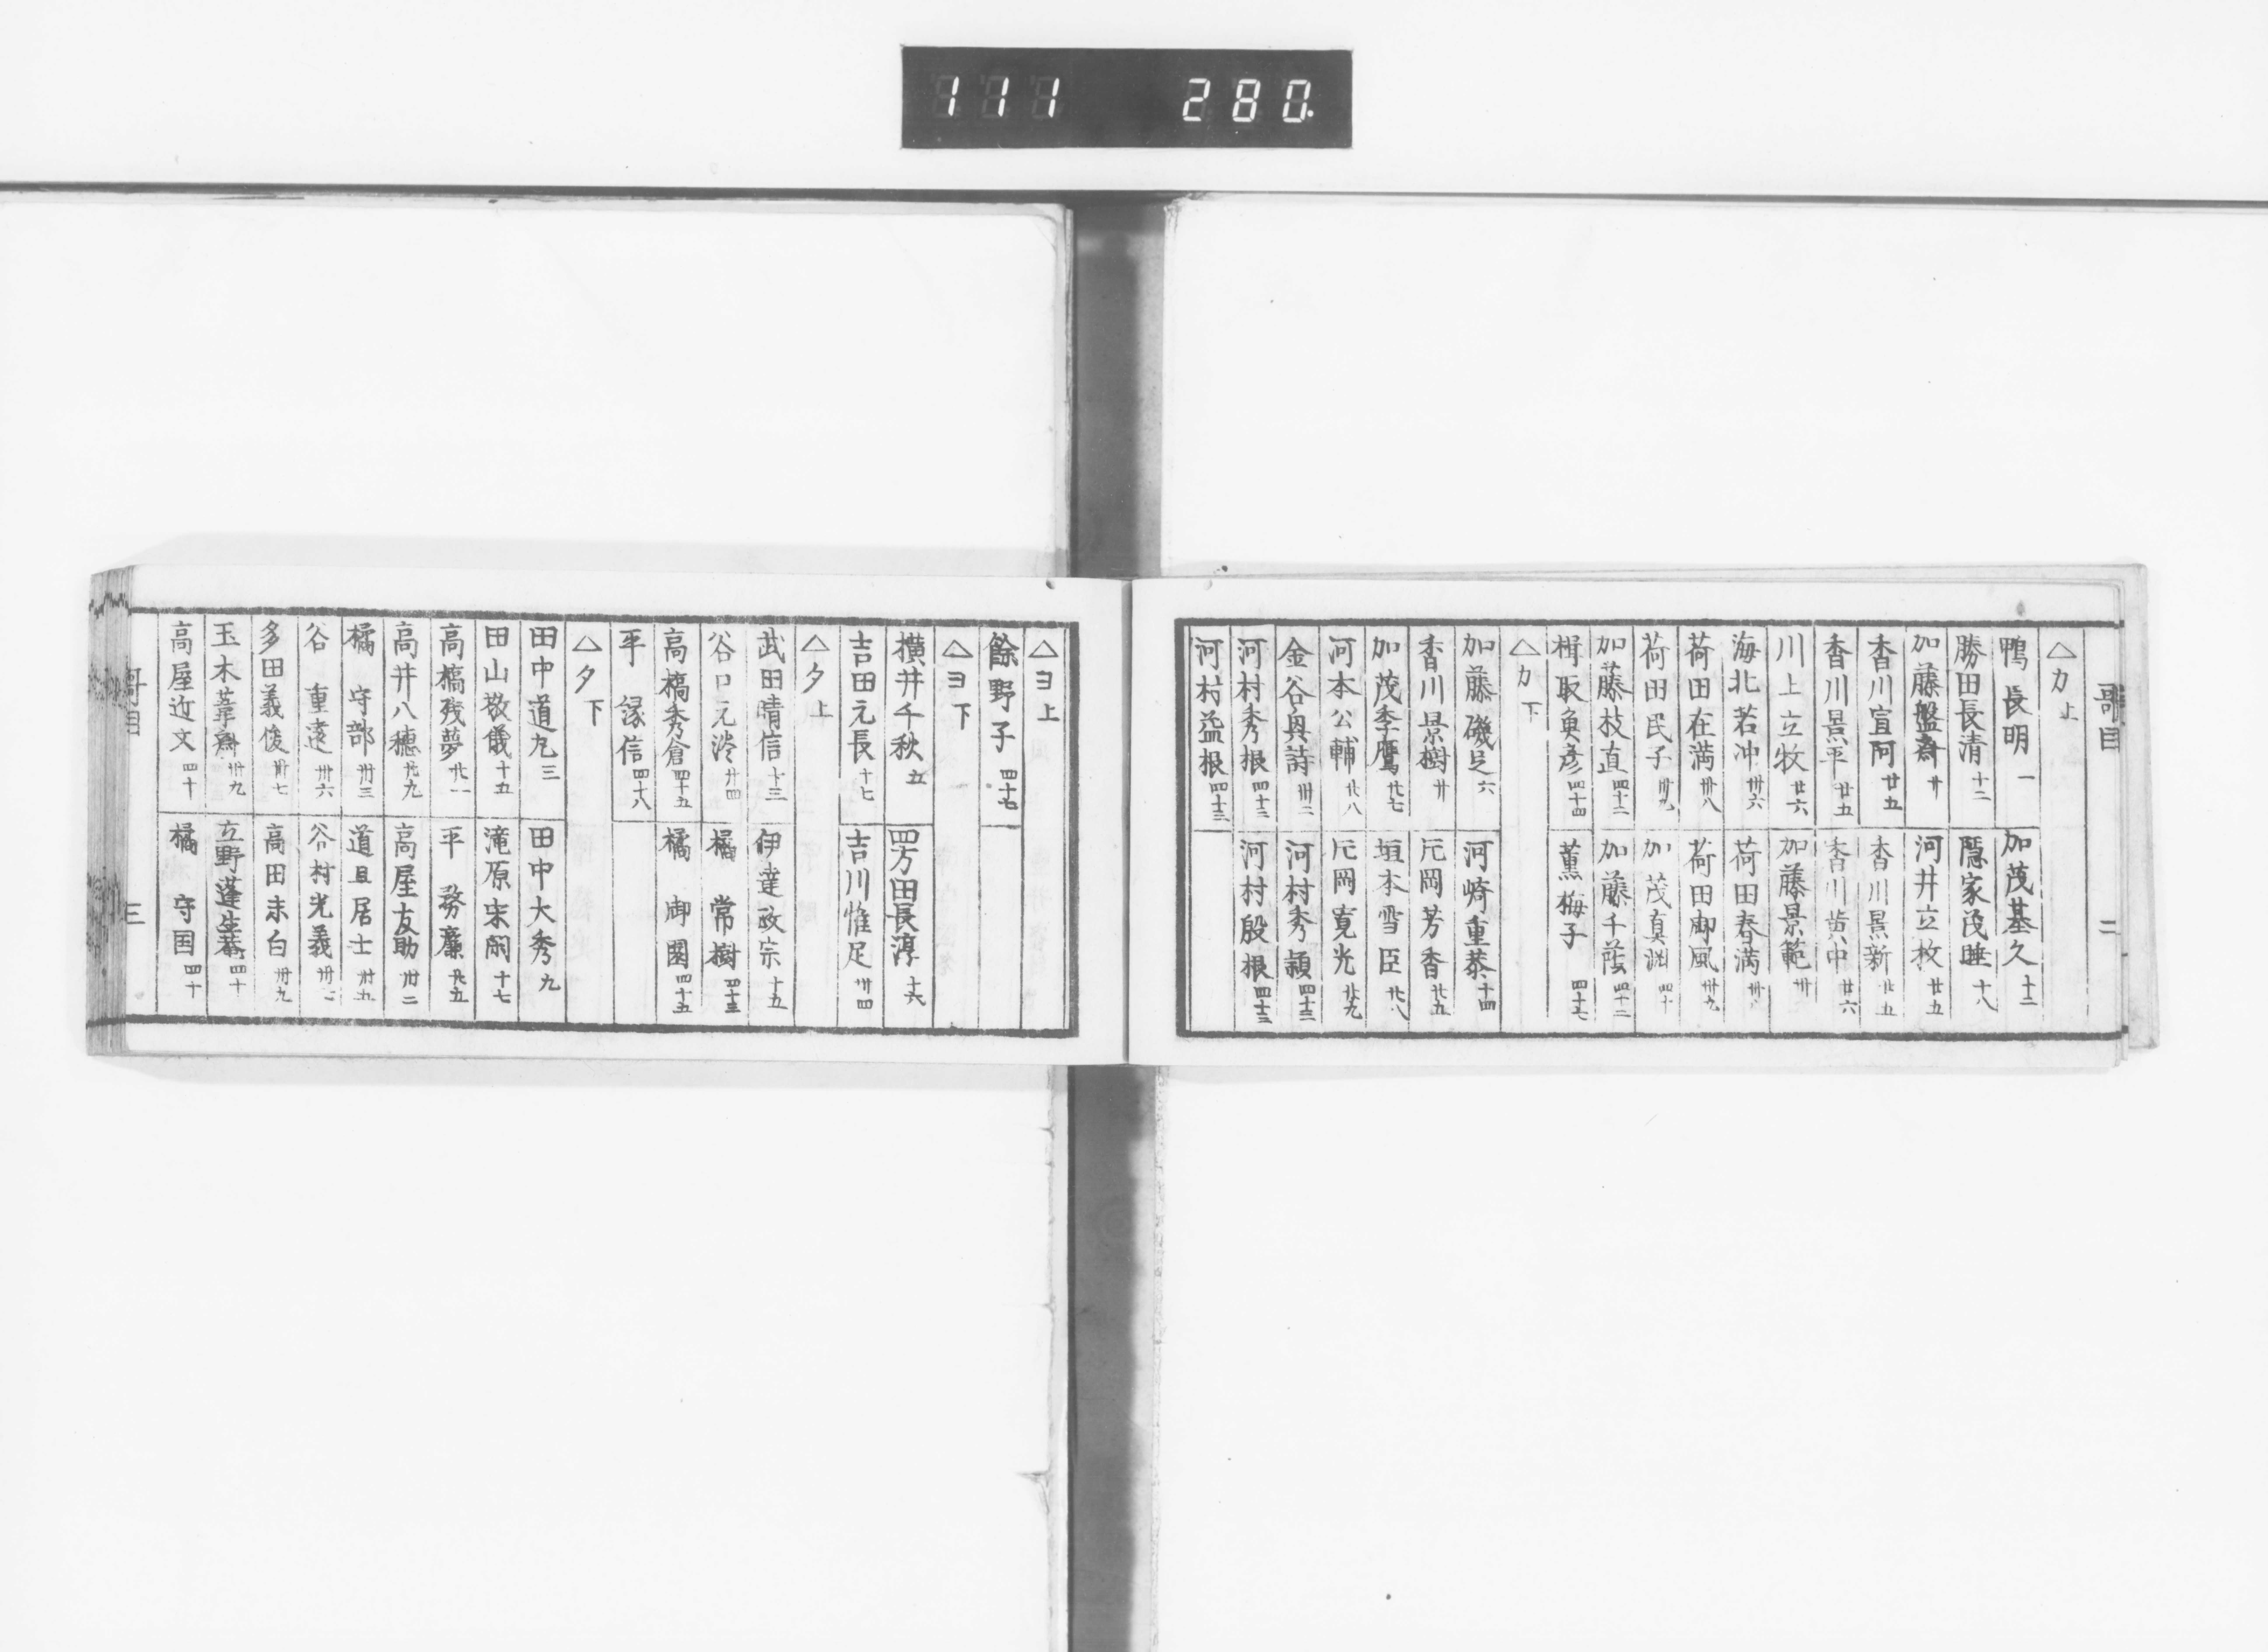 111 280.
哥目 二
△カ上
鴨長明 一 加茂基久 十二
勝田長清 十二 隠家茂睡 十八
加藤盤斎 廾 河井立牧 廿五
香川宣阿 廿五 香川景新 廿五
香川景平 廿五 香川黄中 廿六
川上立牧 廿六 加藤景範 卅
海北若冲 卅六 荷田春満
荷田在満 卅八 荷田御風 卅九
荷田民子 卅九 加茂真渕 四十
加藤枝直 四十二 加藤千蔭 四十二
楫取魚彦 四十四 薫梅子 四十七
△カ下
加藤磯足 六 河崎重恭 十四
香川景樹 廾 元岡芳香 廿五
加茂季鷹 廿七 垣本雪臣 廿八
河本公輔 廿八 元岡寛光 廿九
金谷興詩 卅二 河村秀頴 四十三
河村秀根 四十三 河村殷根 四十三
河村益根 四十三
△ヨ上
餘野子 四十七
△ヨ下
横井千秋 五 四方田長淳 十六
吉田元長 十七 吉川惟足 卅四
△タ上
武田晴信 十三 伊達政宗 十五
谷口元淡 廿四 橘常樹 四十三
高橋秀倉 四十五 橘御園 四十五
平 縁信 四十八
△タ下
田中道丸 三 田中大秀 九
田山敬儀 十五 滝原宋閑 十七
高橋残夢 廿一 平 務廉 廿五
高井八穂 廿九 高屋友助 卅二
橘 守部 卅三 道旦居士 卅五
谷 重遠 卅六 谷村光義
多田義俊 卅七 高田未白 卅九
玉木葦斎 卅九 立野蓬生菴 四十
高屋近文 四十 橘 守国 四十
哥目 三